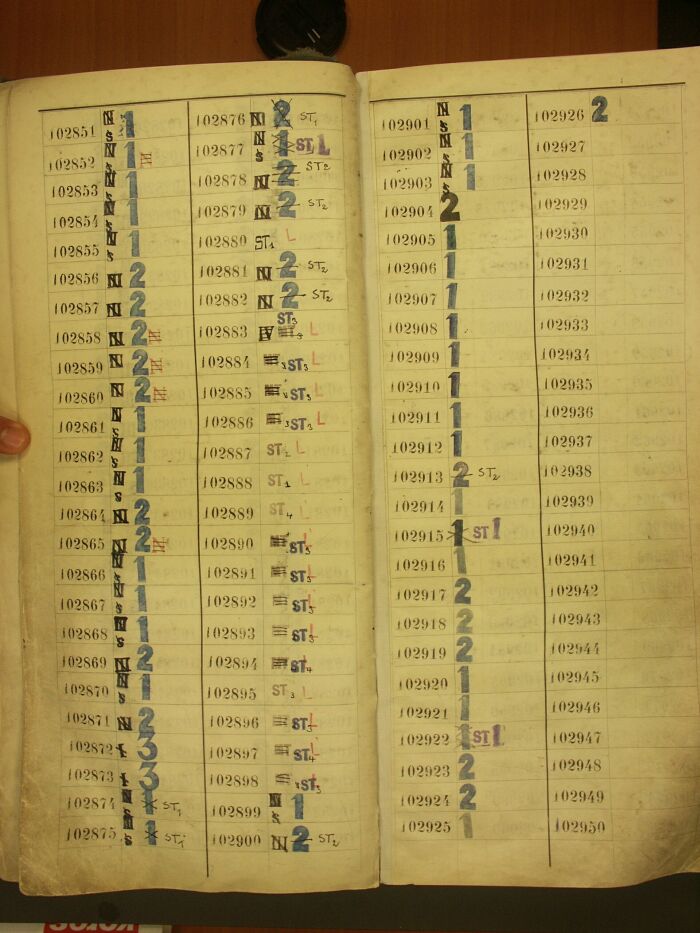 102851 N s 1
102852 s 1
102853 s 1
102854 N s 1
102855 N s 1
102856 N 2
102857 N 2
102858 N 2
102859 N 2
102860 N 2
102861 N s 1
102862 N s 1
102863 N s 1
102864 N 2
102865 N 2
102866 N s 1
102867 N s 1
102868 N s 1
102869 N 2
102870 N s 1
102871 N 2
102872 3
102873 3
102874 N s 1 ST1
102875 N s 1 ST1
102876 N 2 ST1
102877 N s 1 ST1 L
102878 N 2 ST2
102879 N 2 ST2
102880 ST1 L
102881 N 2 ST2
102882 N 2 ST2
102883 ST3 L
102884 ST3 L
102885 ST3 L
102886 ST3 L
102887 ST L
102888 ST1 L
102889 ST4 L
102890 ST5 L
102891 ST3 L
102892 ST3 L
102893 ST3 L
102894 ST4 L
102895 ST3 L
102896 ST3 L
102897 ST4 L
102898 ST3 L
102899 N s 1
102900 N 2 ST2
102901 N s 1
102902 N s 1
102903 N s 1
102904 2
102905 1
102906 1
102907 1
102908 1
102909 1
102910 1
102911 1
102912 1
102913 2 ST2
102914 1
102915 1 ST 1
102916 1
102917 2
102918 2
102919 2
102920 1
102921 1
102922 1 ST 1
102923 2
102924 2
102925 1
102926 2
102927
102928
102929
102930
102931
102932
102933
102934
102935
102936
102937
102938
102939
102940
102941
102942
102943
102944
102945
102946
102947
102948
102949
102950